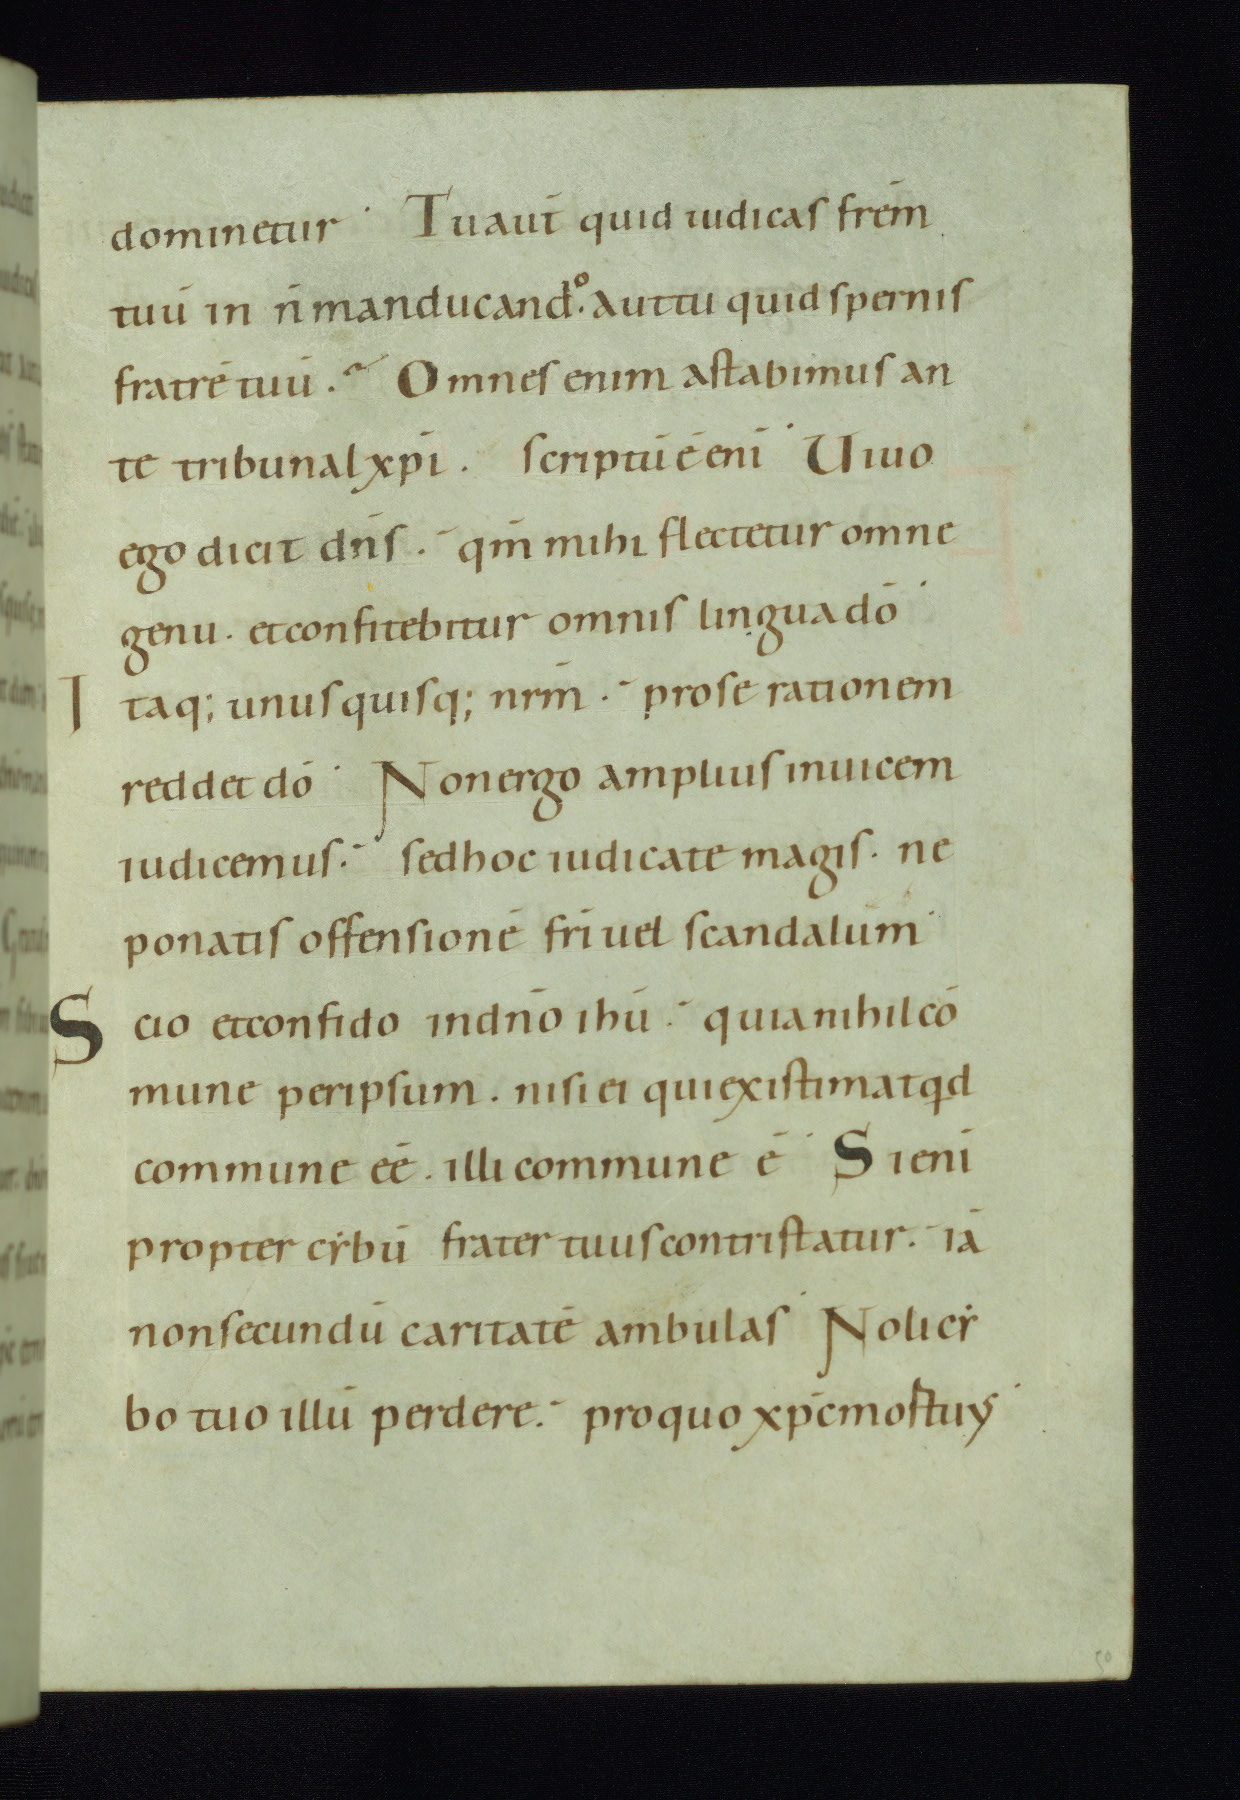 dominetur · Tu aut̄ quid iudicas frēm
tuū in n̄ manducand̊o. aut tu quid spernis
fratrē tuū . Omnes enim astabimus an
te tribunal xp̄i . scriptū ē enī · Uiuo
ego dicit dn̄s . qm̄ mihi flectetur omne
genu . et confitebitur omnis lingua dō ·
Itaq; unusquisq; nrm̄ . pro se rationem
reddet dō · Non ergo amplius inuicem
iudicemus . sed hoc iudicate magis . ne
ponatis offensionē fri̅ uel scandalum ·
Scio et confido in dn̄o ihū . quia nihil cō
mune per ipsum . nisi ei qui existimat qd
commune eē . illi commune ē · Si enī
propter cẏbū frater tuus contristatur . iā
non secundū caritatē ambulas · Noli cẏ
bo tuo illū perdere . pro quo xp̄c mortuus ·
50